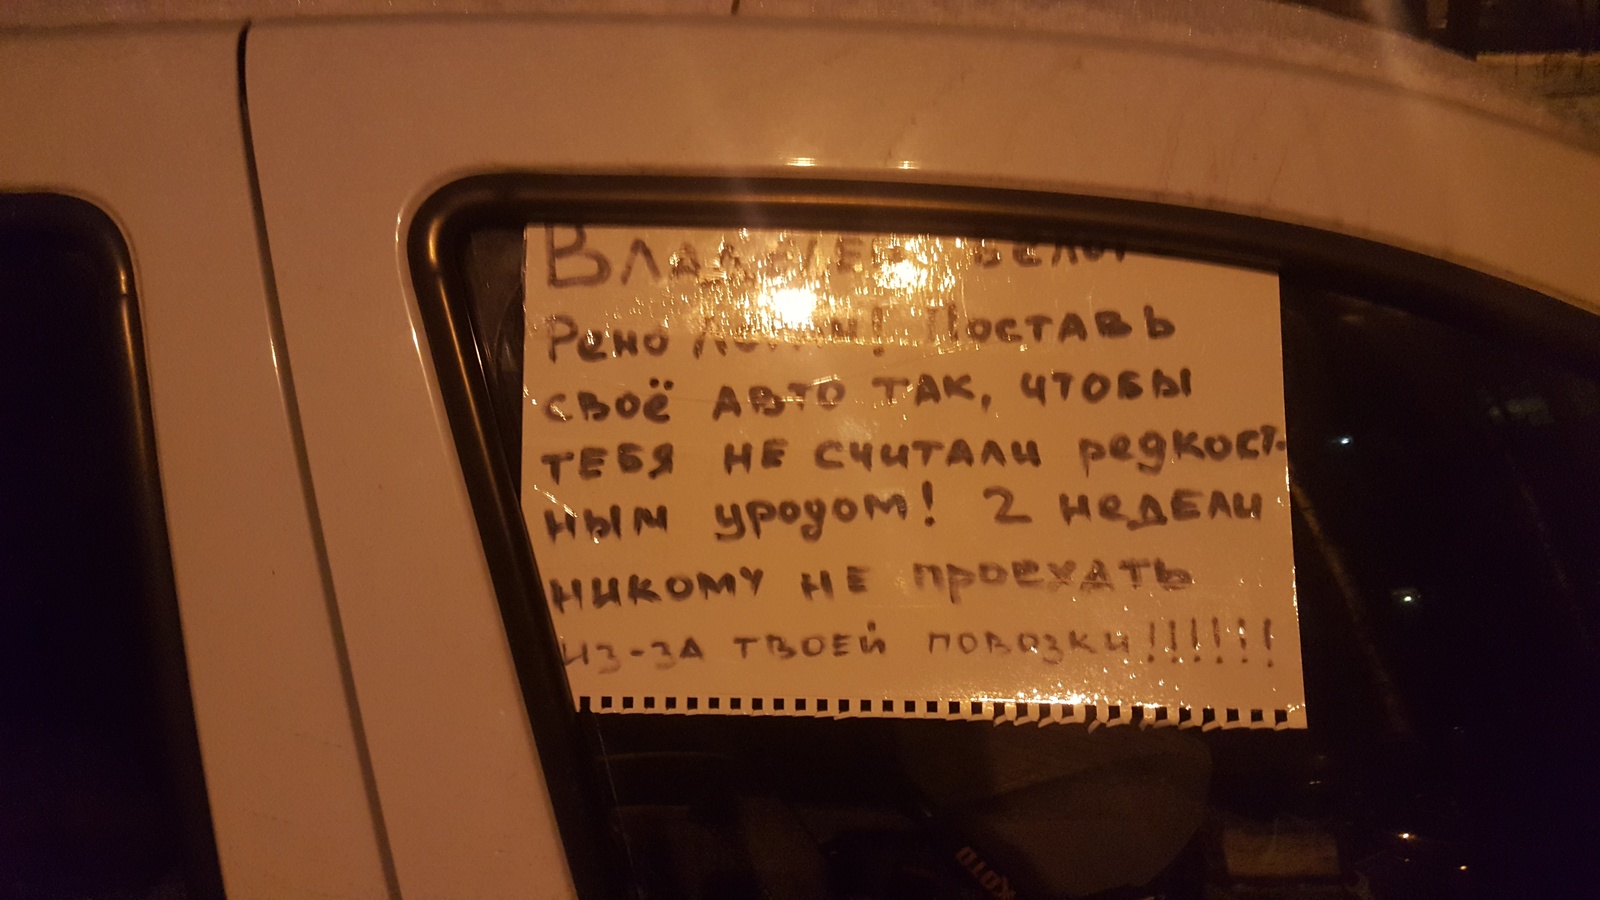 Владелец белого
Рено Логан! Поставь
своё авто так, чтобы
тебя не считали редкост-
ным уродом! 2 недели
никому не проехать
из-за твоей повозки!!!!!!